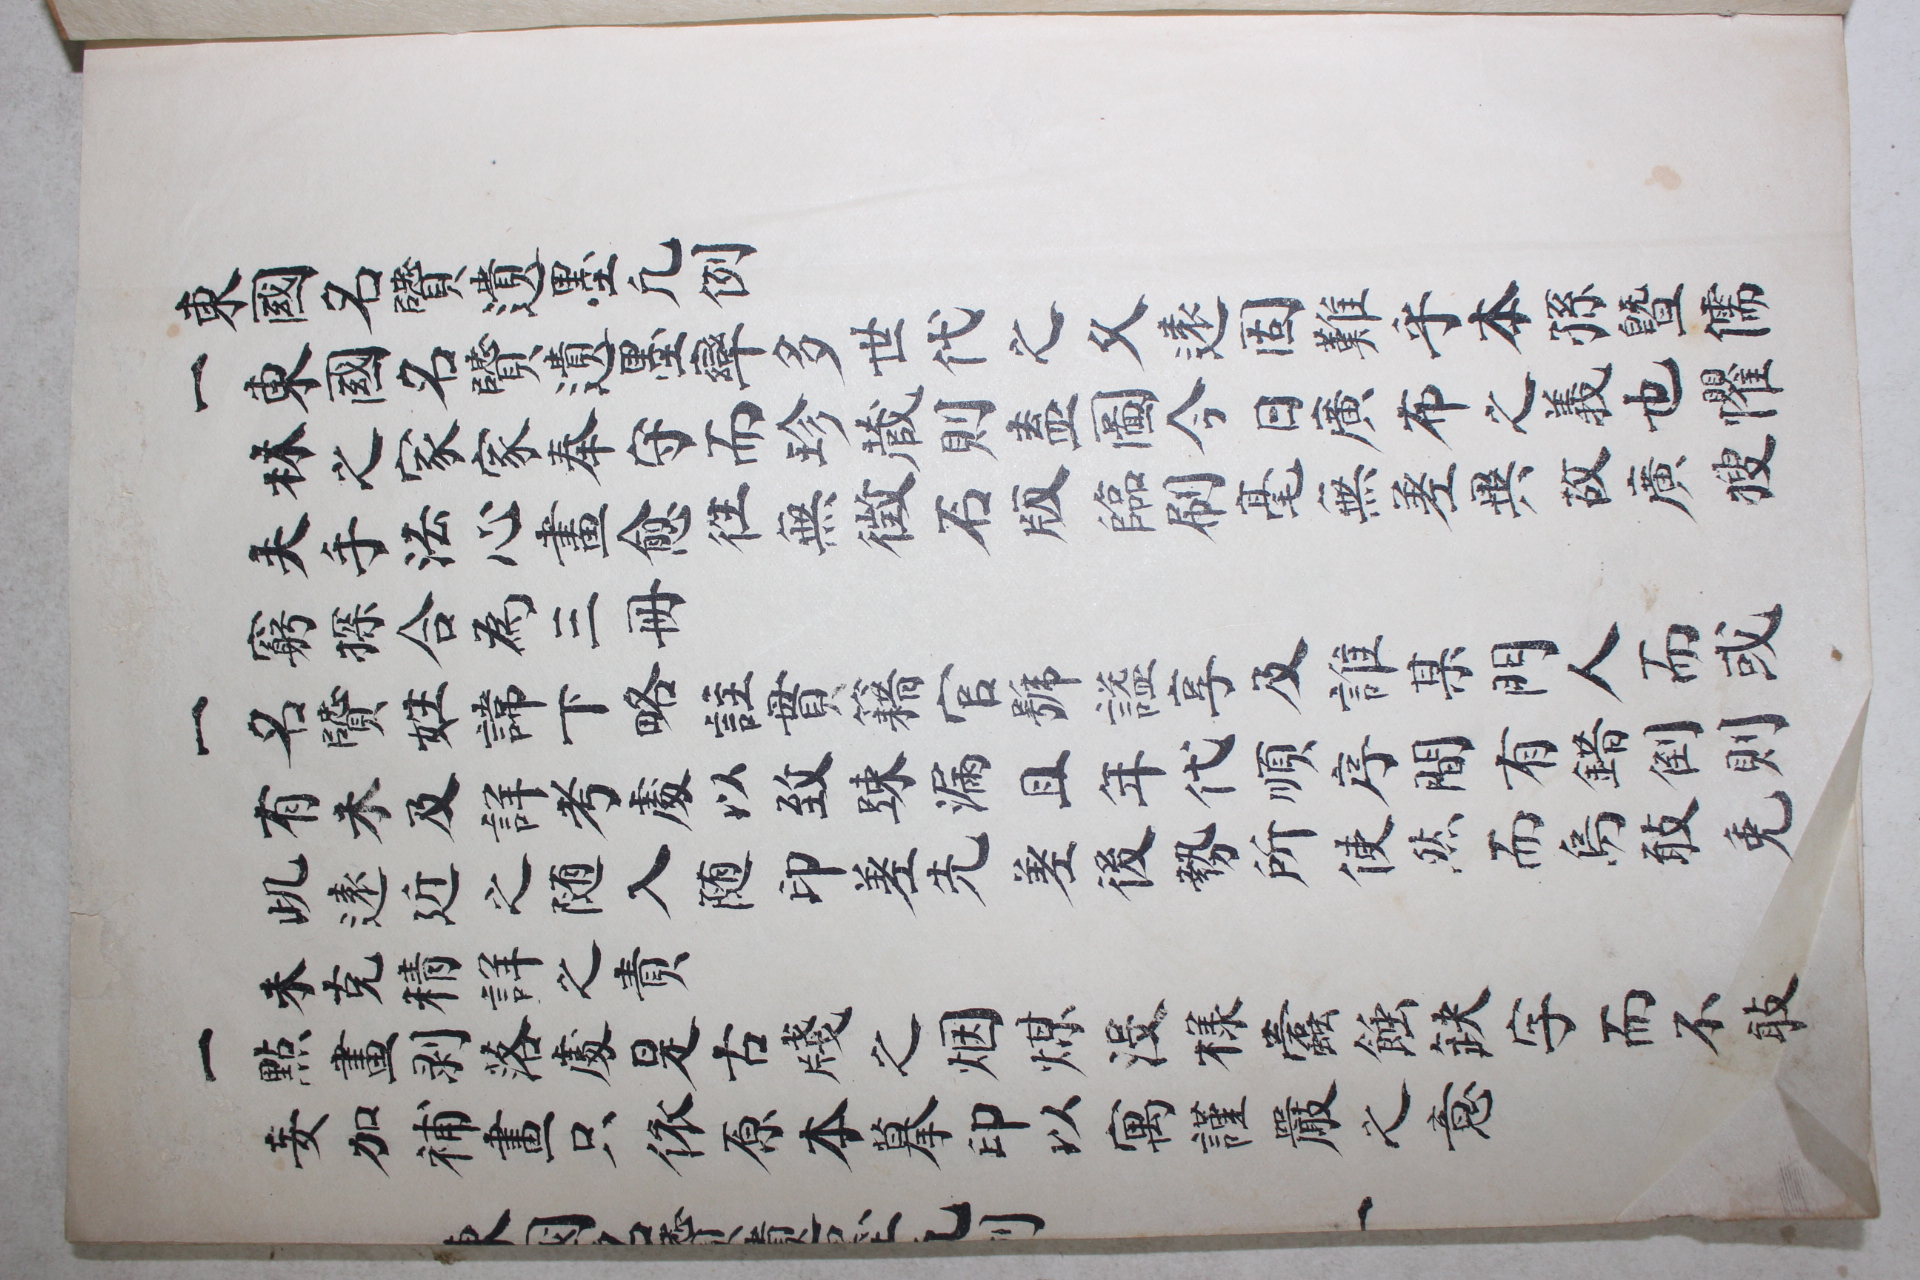 東國名賢遺墨凡例
一東國名賢遺墨率多世代之久遠固難乎本孫曁儒
林之家家奉守而珍蔵則盍圖今日廣布之義也懼
夫手法心畫愈徃無徴石版臨刷毫無差異故廣搜
窮探合為三冊
一名賢姓諱下略註貫籍官號諡享及誰某門人而或
有未及詳考處以致踈漏且年代順序間有錯倒則
此遠近之随入随印差先差後勢所使然而烏敢免
未克精詳之責
一點畫剥落處是古牋之烟煤没樣蠧蝕缺字而不敢
妄加補畫只依原本摹印以寓謹嚴之意
東國名賢遺墨凡例
一